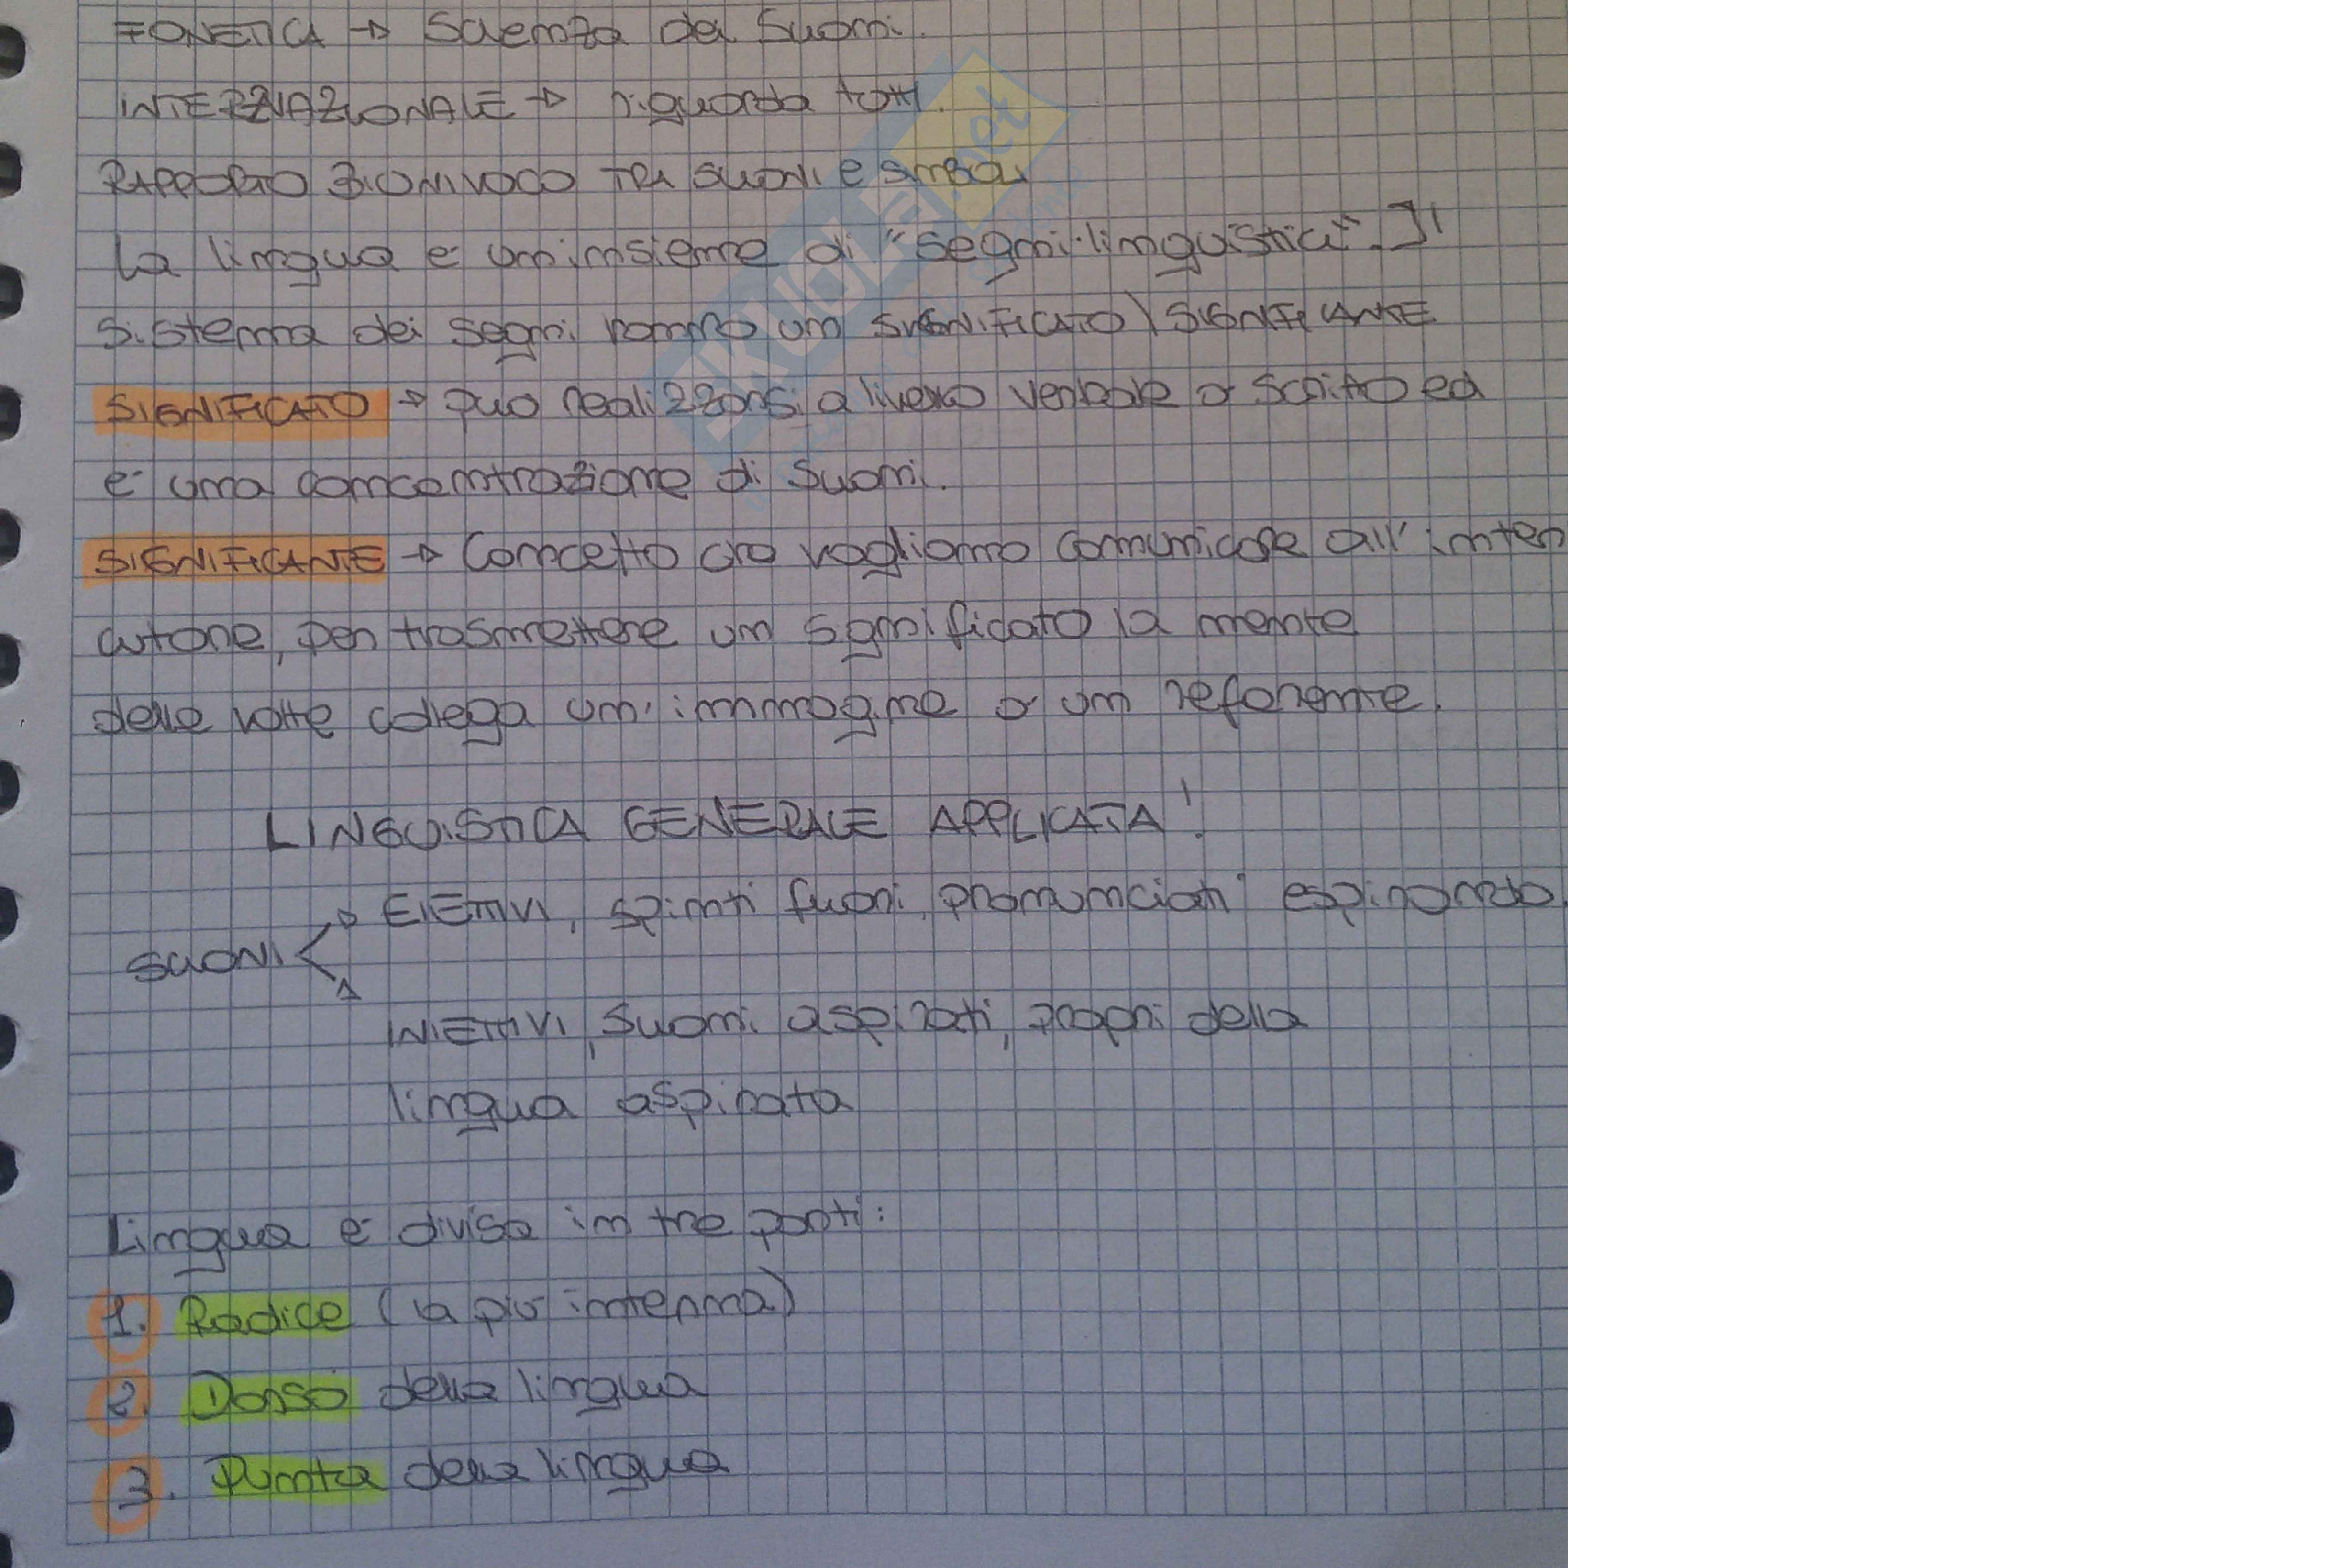 FONETICA → Scienza dei Suoni.
INTERNAZIONALE → riguarda tutti.
RAPPORTO BIONIVOCO TRA SUONI E SIMBOLI
La lingua è un insieme di "segni linguistici". Il
Sistema dei segni hanno un SIGNIFICATO \ SIGNIFICANTE
SIGNIFICATO → può realizzarsi a livello verbale o scritto ed
è una concentrazione di Suoni.
SIGNIFICANTE → Concetto che vogliamo comunicare all'interl
cutore, per trasmettere un significato la mente
delle volte collega un immagine o un referente.
LINGUISTICA GENERALE APPLICATA!
SUONI
→ EIETTIVI, spinti fuori, pronunciati espirando.
→ INIETTIVI, Suoni aspirati, propri della
lingua aspirata
Lingua è divisa in tre parti:
1. Radice (la più interna)
2. Dorso della lingua
3. Punta della lingua
SKUOLA.net